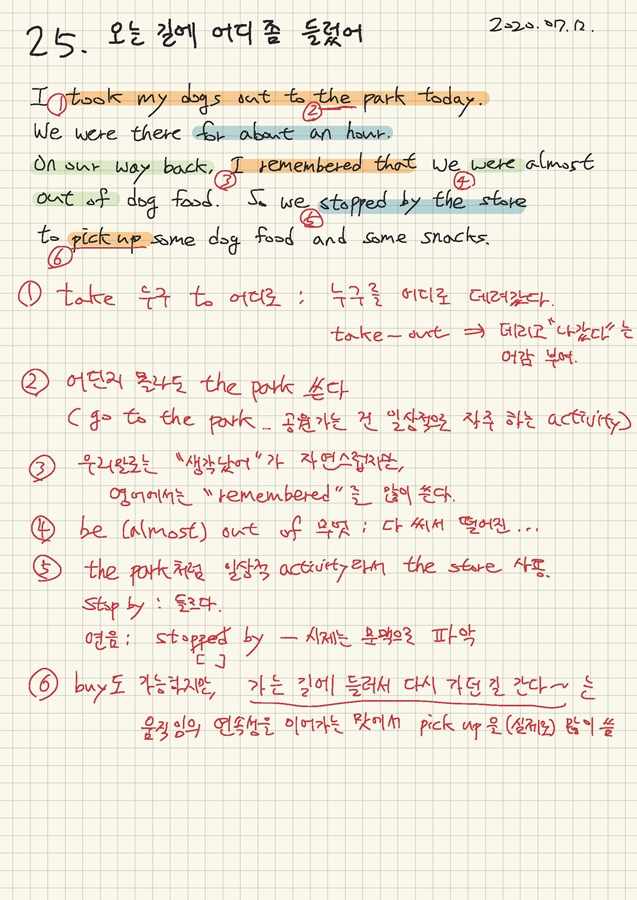 25. 오는 길에 어디 좀 들렀어 2020.07.12.
I took my dogs out to the park today.
① ②
We were there for about an hour.
On our way back, I remembered that we were almost
③ ④
out of dog food. So we stopped by the store
⑤
to pick up some dog food and some snacks.
⑥
① take 누구 to 어디로 : 누구를 어디로 데려갔다.
take-out ⇒ 데리고 "나갔다"는
어감 부여.
② 어딘지 몰라도 the park 쓴다
( go to the park... 공원가는 건 일상적으로 자주 하는 activity)
③ 우리말로는 "생각났어"가 자연스럽지만,
영어에서는 "remembered"를 많이 쓴다.
④ be (almost) out of 무엇 : 다 써서 떨어진...
⑤ the park처럼 일상적 activity라서 the store 사용.
stop by : 들르다.
연음 : stopped by — 시제는 문맥으로 파악
[ ]
⑥ buy도 가능하지만, 가는 길에 들러서 다시 가던 길 간다~ 는
움직임의 연속성을 이어가는 맛에서 pick up을 (실제로) 많이 씀